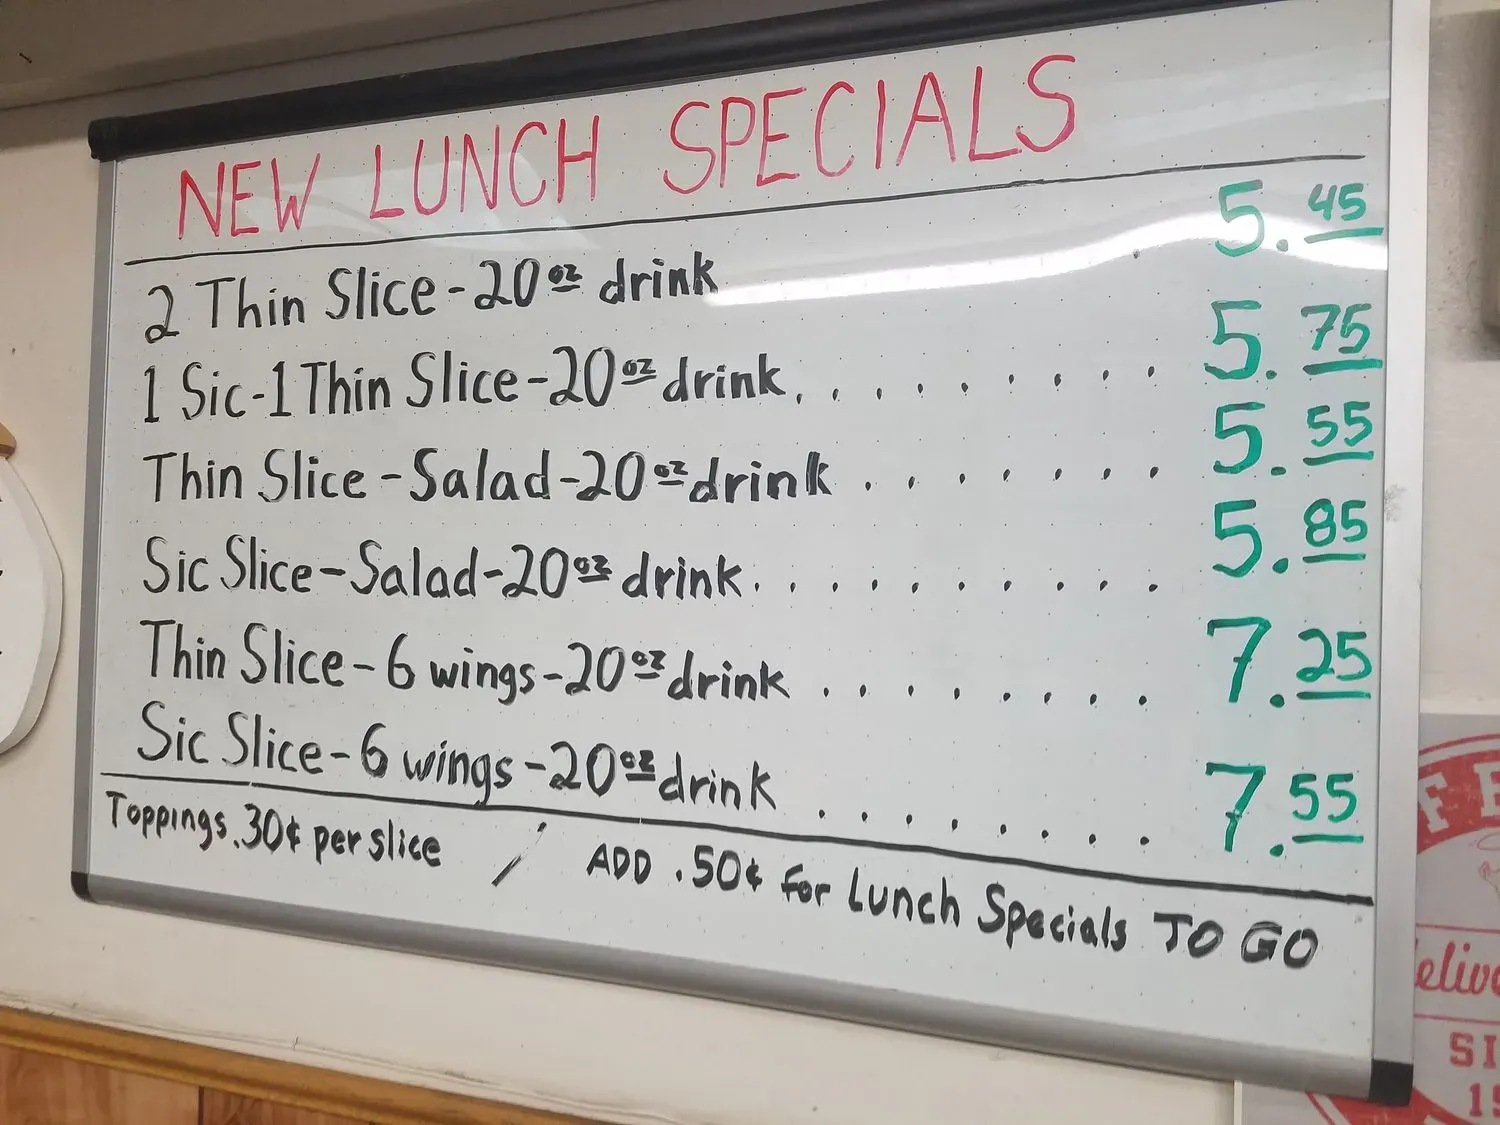 NEW LUNCH SPECIALS
2 Thin Slice - 20 oz drink 5.45
1 Sic - 1 Thin Slice - 20 oz drink......... 5.75
Thin Slice - Salad - 20 oz drink....... 5.55
Sic Slice - Salad - 20 oz drink.......... 5.85
Thin Slice - 6 wings - 20 oz drink........ 7.25
Sic Slice - 6 wings - 20 oz drink........ 7.55
Toppings .30¢ per slice / ADD .50¢ for Lunch Specials TO GO